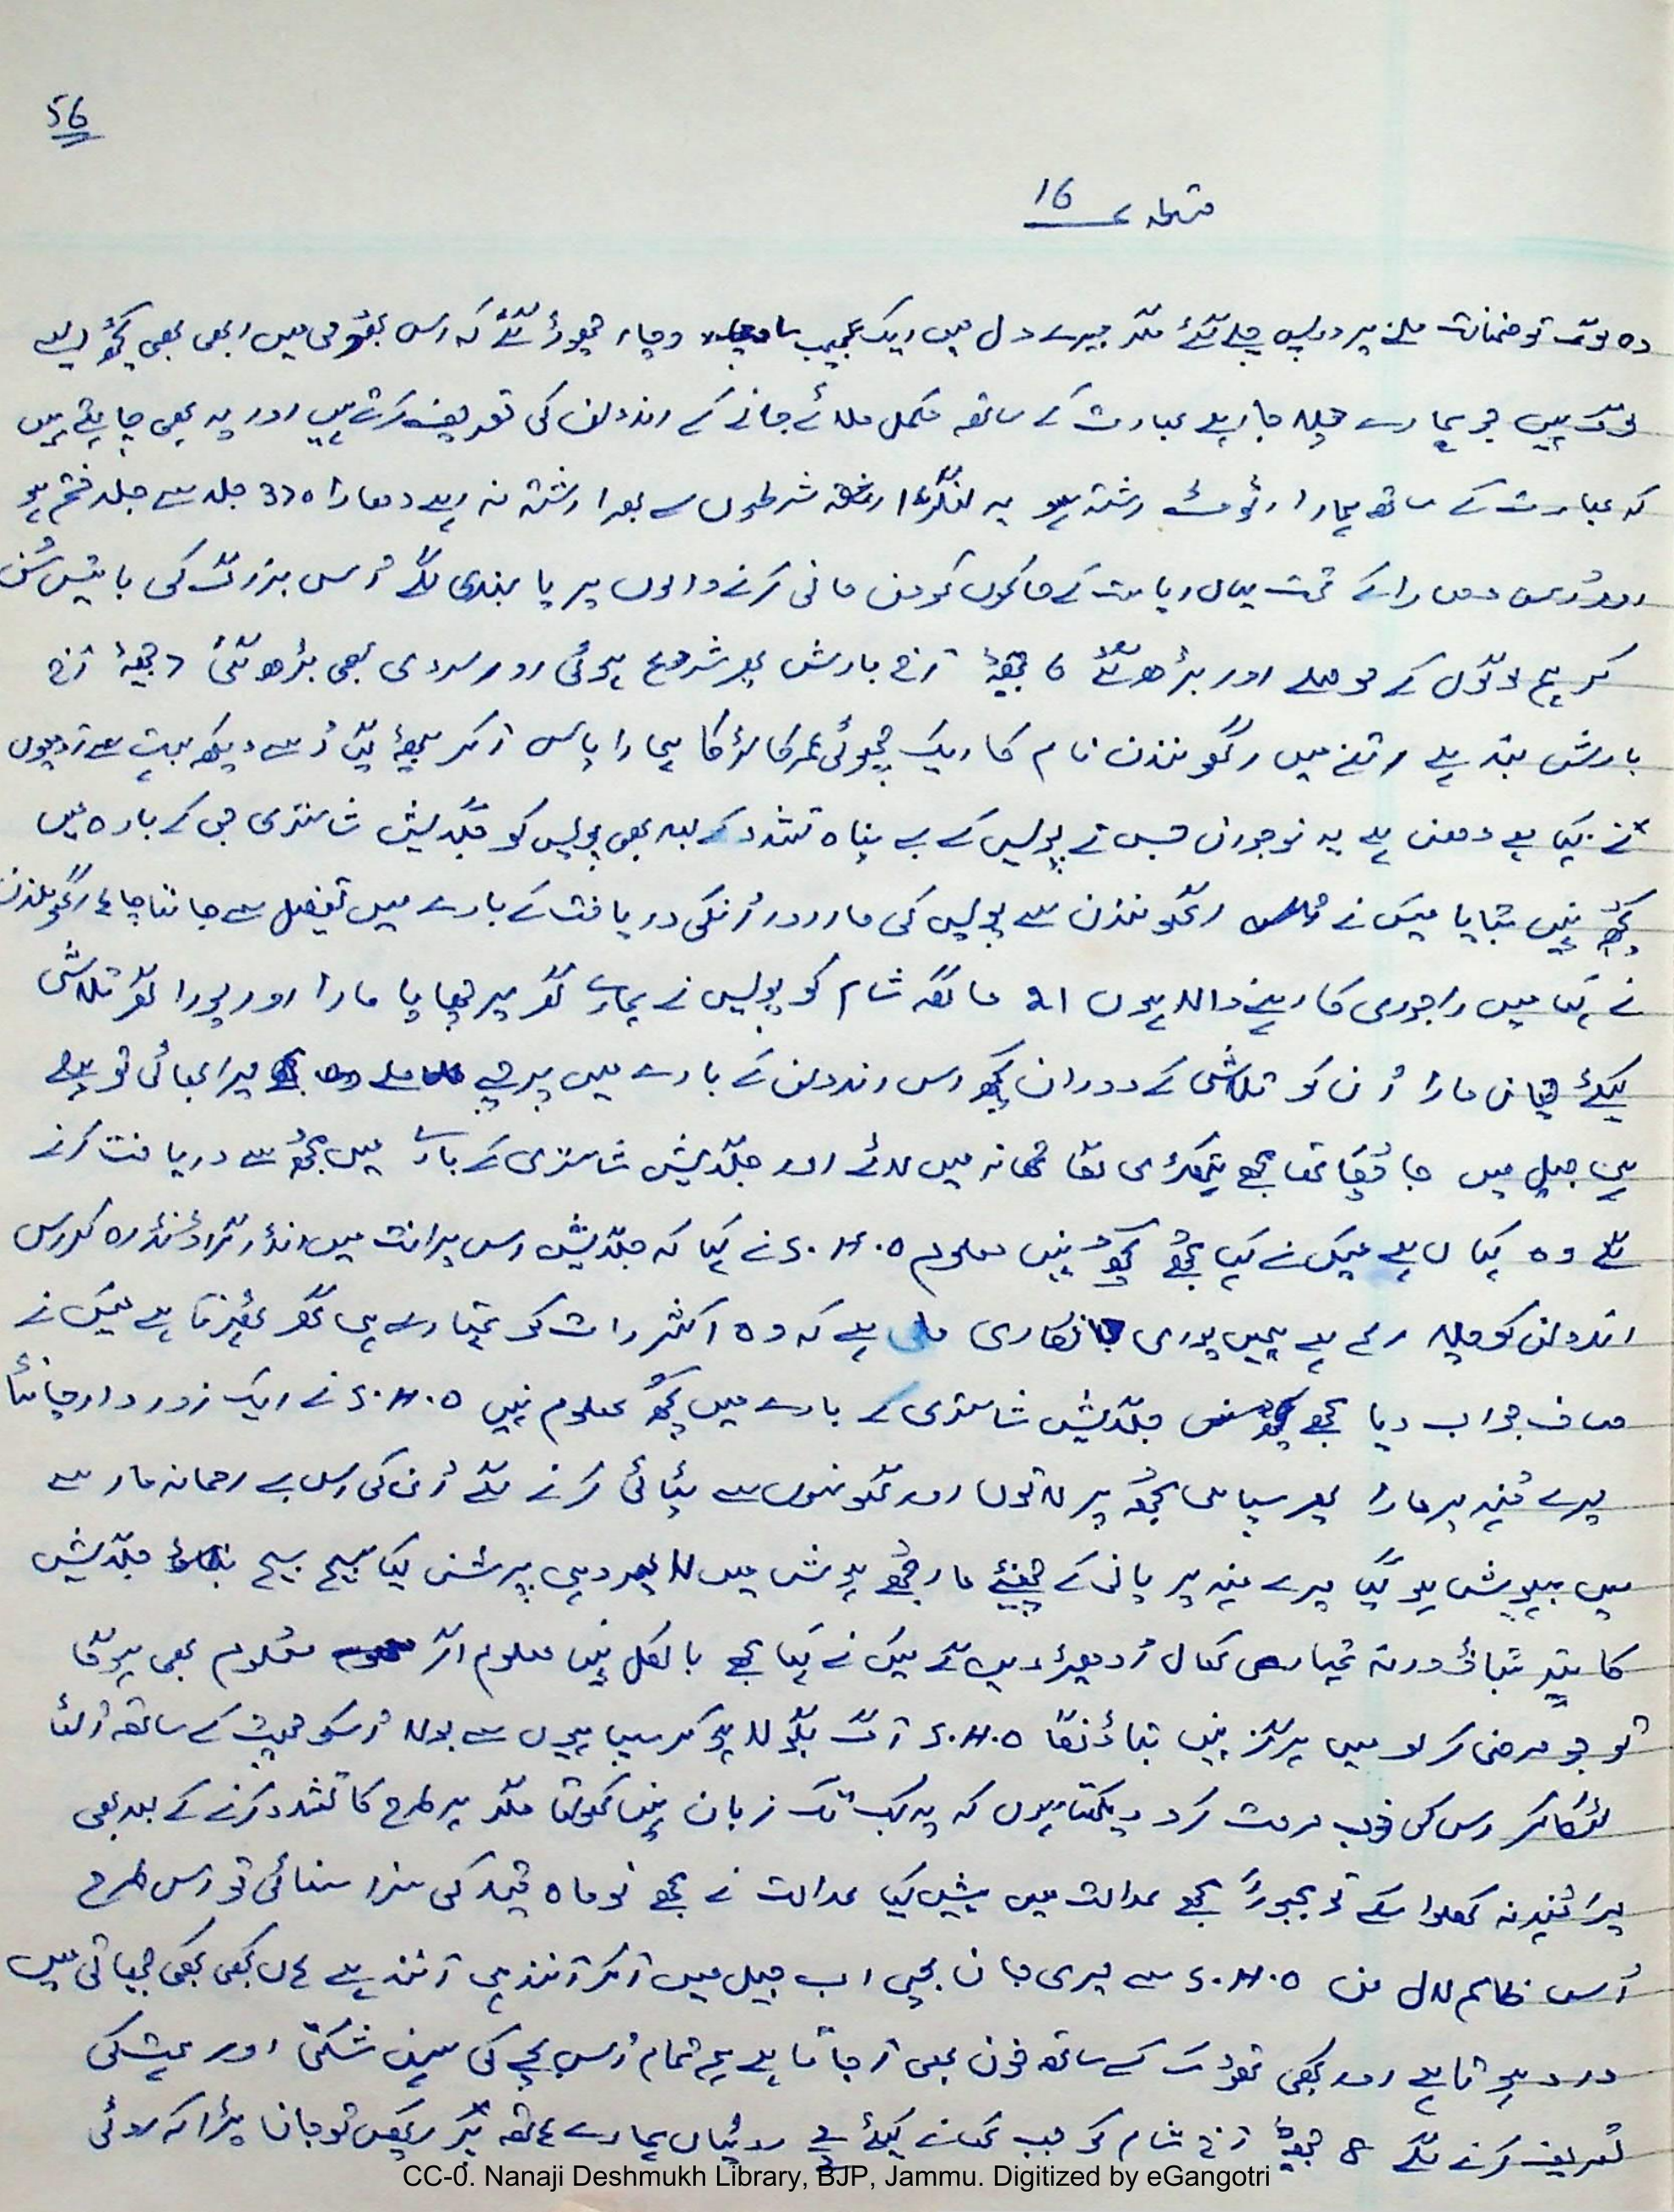 56
قسط ؁ 16
وہ لوگ تو ضمانت ملنے پر واپس چلے گئے مگر میرے دل میں ایک عجیب سا وچار چھوڑ گئے کہ اس میں ابھی بھی کچھ ایسے
لوگ ہیں جو ہمارے چلا جا رہے بھارت کے ساتھ مکمل ملائے جانے کے اندولن کی تعریف کرتے ہیں اور یہ بھی چاہتے ہیں
کہ بھارت کے ساتھ ہمارا اٹوٹ رشتہ ہو یہ لنگڑا شرطوں سے بھرا رشتہ نہ رہے دھارا 370 جلد سے جلد ختم ہو
اور اس دھارا کے تحت یہاں ریاست کے حاکموں کو من مانی کرنے والوں پر پابندی لگے اُس بزرگ کی باتیں سُن
کر ہم لوگوں کے حوصلے اور بڑھ گئے 6 آج بارش پھر شروع ہوئی اور سردی بھی بڑھ گئی 7 آج
بارش بند ہے اتنے میں رگھونندن نام کا ایک چھوٹی عمر کا لڑکا ہمارا پاس آ کر بیٹھ گیا اُسے دیکھ بہت سے آدمیوں
نے کہا ہے دھن ہے یہ نوجوان جس نے پولیس کے بے پناہ تشدد کے بعد بھی پولیس کو جگدیش شاستری جی کے بارہ میں
کچھ نہیں بتایا میں نے رگھونندن سے پولیس کی مار اور اُنکی دریافت کے بارے میں تفصیل سے جاننا چاہا رگھونندن
نے کہا میں راجوری کا رہنے والا ہوں 21 ماگھ شام کو پولیس نے ہمارے گھر پر چھاپا مارا اور پورا گھر تلاشی
کیلئے چھان مارا اُن کو تلاشی کے دوران کچھ اس اندولن کے بارے میں پرچے ملے میرا بھائی تو پہلے
ہی جیل میں جا چُکا تھا مجھے پکڑ کر تھانہ میں لائے اور جگدیش شاستری کے بارے میں مجھ سے دریافت کرنے
لگے وہ کہاں ہے میں نے کہا مجھے کچھ نہیں معلوم S.H.O نے کہا کہ جگدیش اس پرانت میں انڈر گراؤنڈ رہ کر اس
اندولن کو چلا رہا ہے ہمیں پوری جانکاری ملی ہے کہ وہ اکثر رات کو تمہارے ہی گھر ٹھہرتا ہے میں نے
صاف جواب دیا مجھے جگدیش شاستری کے بارے میں کچھ معلوم نہیں S.H.O نے ایک زور دار چانٹا
میرے مُنہ پر مارا پھر سپاہی مجھ پر لاتوں اور گھونسوں سے پٹائی کرنے لگے اُن کی اس بے رحمانہ مار سے
میں بیہوش ہو گیا میرے منہ پر پانی کے چھینٹے مار مجھے ہوش میں لا پھر وہی پرشن کیا سچ سچ بتاؤ جگدیش
کا پتہ بتاؤ ورنہ تمہاری کھال اُدھیڑ دیں گے میں نے کہا مجھے بالکل نہیں معلوم اگر معلوم بھی ہوگا
تو جو مرضی کر لو میں ہرگز نہیں بتاؤنگا S.H.O آگ بگولا ہو کر سپاہیوں سے بولا اُسکو چھت کے ساتھ اُلٹا
لٹکا کر اس کی خوب مرمت کرو دیکھتا ہوں کہ یہ کب تک زبان نہیں کھولتا مگر ہر طرح کا تشدد کرنے کے بعد بھی
میرا مُنہ نہ کھلوا سکے تو مجبوراً مجھے عدالت میں پیش کیا عدالت نے مجھے نو ماہ قید کی سزا سنائی تو اس طرح
اُس ظالم لال من S.H.O سے میری جان بچی اب جیل میں آ کر آنند ہی آنند ہے ہاں کبھی کبھی چھاتی میں
درد ہوتا ہے اور کبھی تھوک کے ساتھ خون بھی آ جاتا ہے ہم تمام اُس بچے کی سہن شکتی اور ہمت کی
تعریف کرنے لگے 8 آج شام کو جب کھانے کیلئے روٹیاں ہمارے ہاتھ تو جان پڑا کہ روٹی
CC-0. Nanaji Deshmukh Library, BJP, Jammu. Digitized by eGangotri